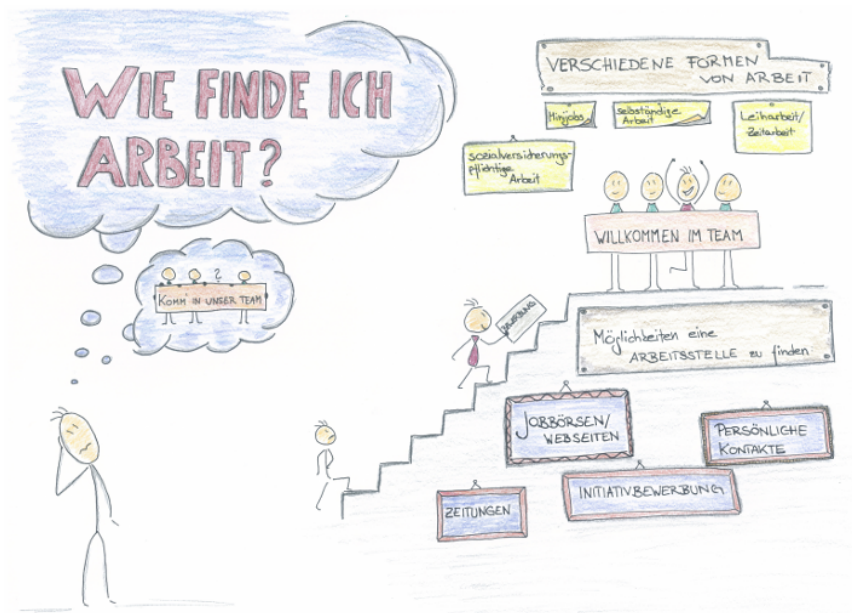 WIE FINDE ICH
ARBEIT?
KOMM' IN UNSER TEAM
?
VERSCHIEDENE FORMEN
VON ARBEIT
Minijobs
selbständige
Arbeit
Leiharbeit/
Zeitarbeit
sozialversicherungs-
pflichtige
Arbeit
WILLKOMMEN IM TEAM
BEWERBUNG
Möglichkeiten eine
ARBEITSSTELLE zu finden
JOBBÖRSEN/
WEBSEITEN
PERSÖNLICHE
KONTAKTE
INITIATIVBEWERBUNG
ZEITUNGEN